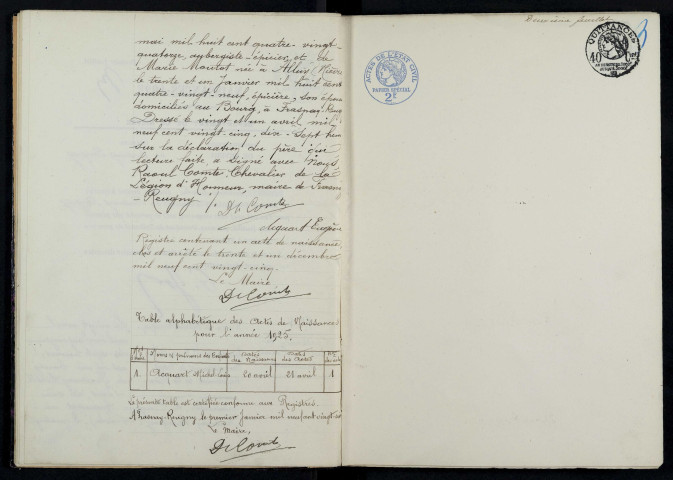 mai mil huit cent quatre-vingt-
quatorze, aubergiste-épicier, et de
Marie née à Alluy (Nièvre
le trente et un Janvier mil huit cent
quatre-vingt-neuf, épicière, son épouse
domiciliés au Bourg, à Frasnay-Reugny
Dressé le vingt et un avril mil
neuf cent vingt-cinq, dix-sept heures
sur la déclaration du père qui
lecture faite, a signé avec Nous
Raoul Comte, Chevalier de la
Légion d'Honneur, maire de Frasnay
-Reugny ./.
Acquart
Registre contenant un acte de naissance
clos et arrêté le trente et un décembre
mil neuf cent vingt-cinq.
Le Maire
Table alphabétique des Actes de Naissances
pour l'année 1925.
Noms et prénoms des Dates des Naissances Dates des Actes
1 Acquart Michel 20 avril 21 avril 1
La présente table est certifiée conforme aux Registres.
A Frasnay-Reugny le premier Janvier mil neuf cent vingt-six
Le Maire,
ACTES DE L'ÉTAT CIVIL
PAPIER SPÉCIAL
2F
Deuxième feuillet
3
QUITTANCES
40